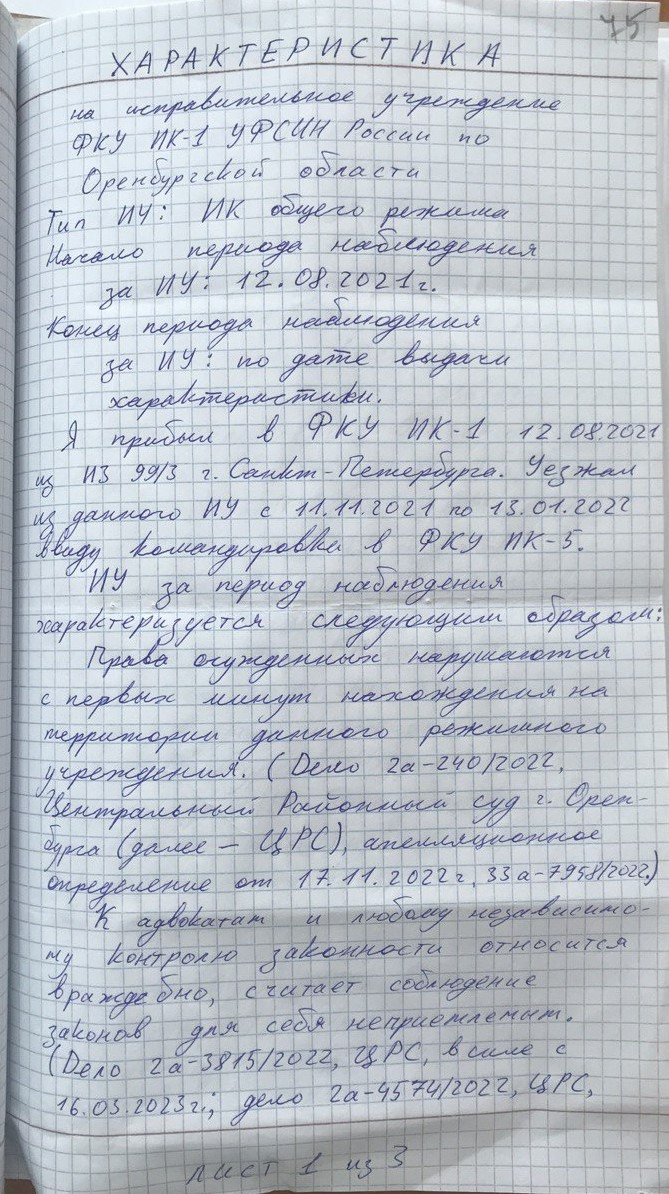 75
ХАРАКТЕРИСТИКА
на исправительное учреждение
ФКУ ИК-1 УФСИН России по
Оренбургской области
Тип ИУ: ИК общего режима
Начало периода наблюдения
за ИУ: 12.08.2021г.
Конец периода наблюдения
за ИУ: по дате выдачи
характеристики.
Я прибыл в ФКУ ИК-1 12.08.2021
из ИЗ 99/3 г. Санкт-Петербурга. Уезжал
из данного ИУ с 11.11.2021 по 13.01.2022
ввиду командировки в ФКУ ИК-5.
ИУ за период наблюдения
характеризуется следующим образом:
Права осужденных нарушаются
с первых минут нахождения на
территории данного режимного
учреждения. (Дело 2а-240/2022,
Центральный Районный суд г. Орен-
бурга (далее – ЦРС), апелляционное
определение от 17.11.2022г, 33а-7958/2022.)
К адвокатам и любому независимо-
му контролю законности относится
враждебно, считает соблюдение
законов для себя неприемлемым.
(Дело 2а-3815/2022, ЦРС, в силе с
16.03.2023г.; дело 2а-4574/2022, ЦРС,
лист 1 из 3